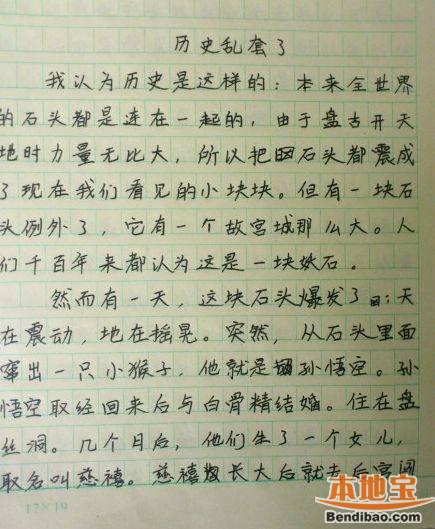 历史乱套了
我认为历史是这样的：本来全世界
的石头都是连在一起的，由于盘古开天
地时力量无比大，所以把石头都震成
了现在我们看见的小块块。但有一块石
头例外了，它有一个故宫城那么大。人
们千百年来都认为这是一块妖石。
然而有一天，这块石头爆发了：天
在震动，地在摇晃。突然，从石头里面
窜出一只小猴子，他就是孙悟空。孙
悟空取经回来后与白骨精结婚。住在盘
丝洞。几个月后，他们生了一个女儿，
取名叫慈禧。慈禧长大后就去后宫闯
17×19
本地宝
Bendibao.com